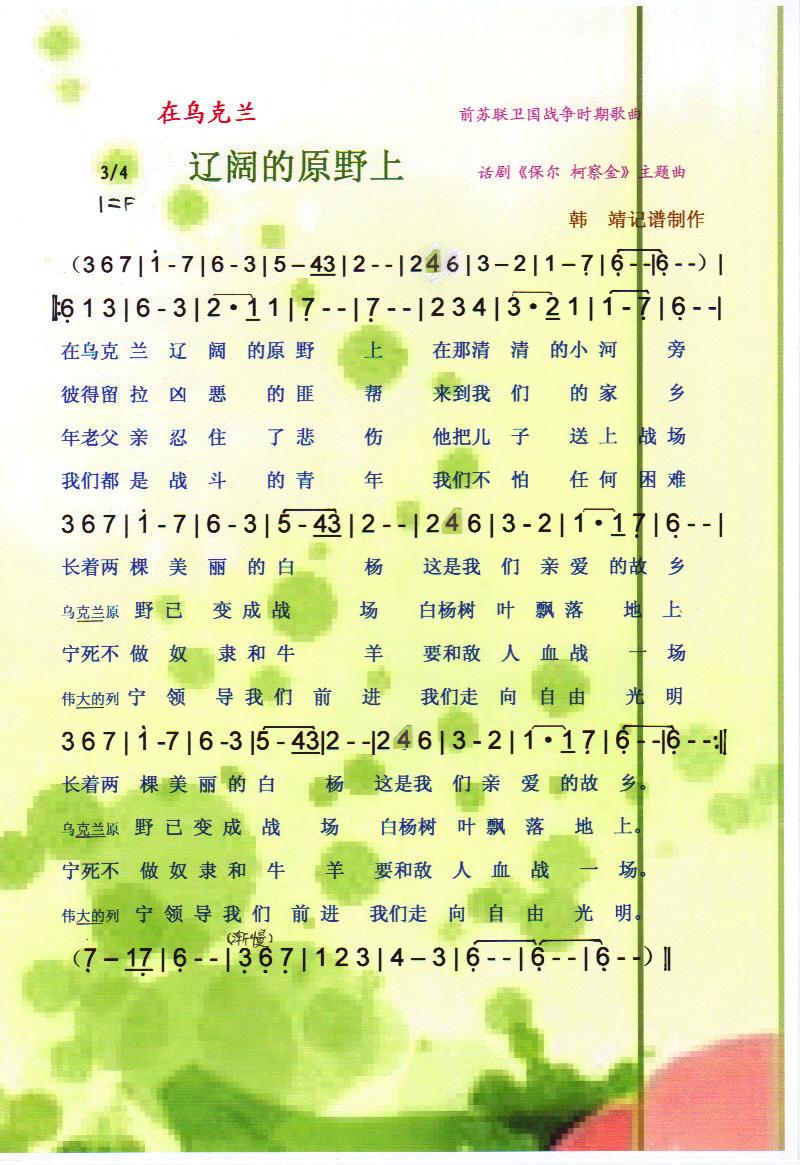 在乌克兰
前苏联卫国战争时期歌曲
3/4
辽阔的原野上
话剧《保尔 柯察金》主题曲
1=F
韩 靖记谱制作
（3 6 7 | 1̇ - 7 | 6 - 3 | 5 – 43 | 2 - - | 2 4 6 | 3 – 2 | 1 – 7̣ | 6̣ - - | 6̣ - - ）|
‖: 6̣ 1 3 | 6 - 3 | 2 · 1 1 | 7̣ - - | 7̣ - - | 2 3 4 | 3 · 2 1 | 1 - 7̣ | 6̣ - - |
在乌克 兰 辽 阔 的原 野 上 在那清 清 的小 河 旁
彼得留 拉 凶 恶 的 匪 帮 来到我 们 的 家 乡
年老父 亲 忍 住 了 悲 伤 他把儿 子 送 上 战 场
我们都 是 战 斗 的 青 年 我们不 怕 任 何 困 难
3 6 7 | 1̇ - 7 | 6 - 3 | 5 - 43 | 2 - - | 2 4 6 | 3 - 2 | 1 · 1 7̣ | 6̣ - - |
长着两 棵 美 丽 的 白 杨 这是我 们 亲 爱 的故 乡
乌克兰原 野 已 变 成 战 场 白杨树 叶 飘 落 地 上
宁死不 做 奴 隶 和 牛 羊 要和敌 人 血 战 一 场
伟大的列 宁 领 导 我 们 前 进 我们走 向 自 由 光 明
3 6 7 | 1̇ - 7 | 6 - 3 | 5 - 43 | 2 - - | 2 4 6 | 3 - 2 | 1 · 1 7̣ | 6̣ - - | 6̣ - - :‖
长着两 棵 美 丽 的 白 杨 这是我 们 亲 爱 的故 乡。
乌克兰原 野 已 变 成 战 场 白杨树 叶 飘 落 地 上。
宁死不 做 奴 隶 和 牛 羊 要和敌 人 血 战 一 场。
伟大的列 宁 领 导 我 们 前 进 我们走 向 自 由 光 明。
（渐慢）
（7̣ – 17̣ | 6̣ - - | 3̣ 6̣ 7̣ | 1 2 3 | 4 – 3 | 6̣ - - | 6̣ - - | 6̣ - - ）‖